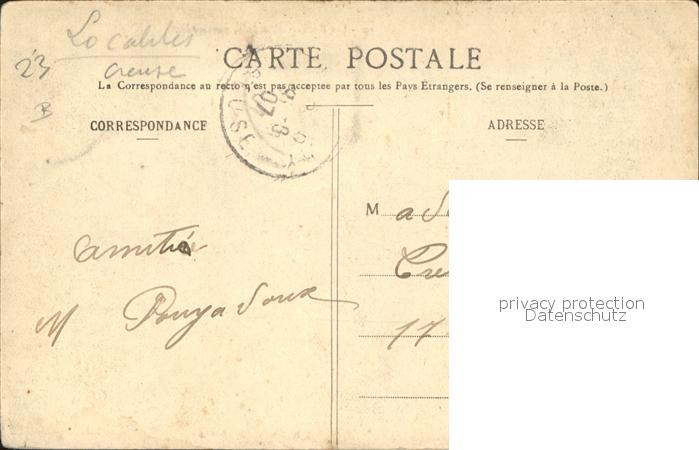 23
Localités
Creuse
B
CARTE POSTALE
La Correspondance au recto n'est pas acceptée par tous les Pays Étrangers. (Se renseigner à la Poste.)
CORRESPONDANCE
ADRESSE
07
EUSE
M
Cre
17
amitié
M
privacy protection
Datenschutz